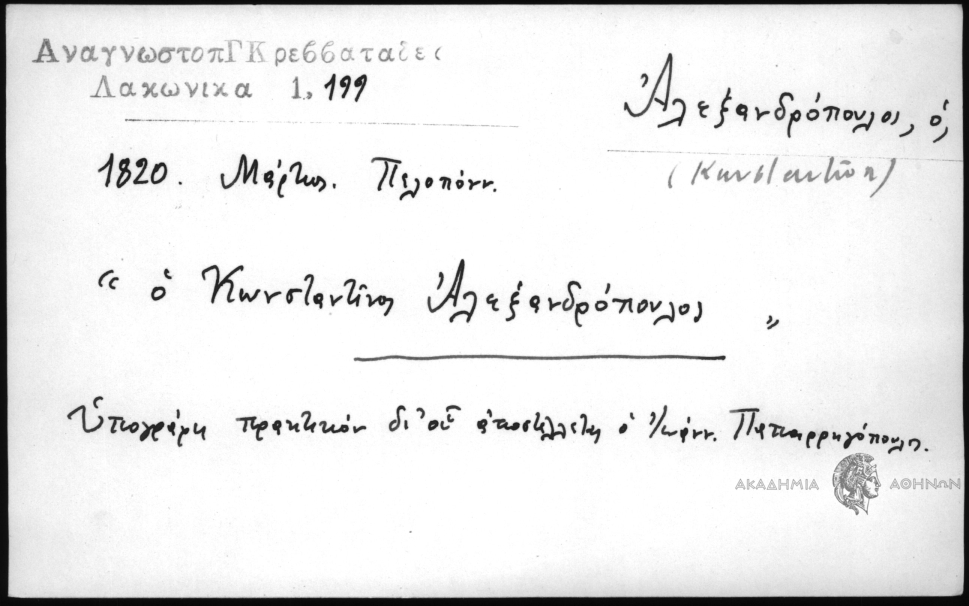 ΑναγνωστοπΓΚρεββαταδες
Λακωνικα 1, 199
Ἀλεξανδρόπουλος, ὁ,
(Κωνσταντῖνος)
1820. Μάρτιος. Πελοπόνν.
“ ὁ Κωνσταντῖνος Ἀλεξανδρόπουλος „
Ὑπογράφει πρακτικὸν δι' οὗ ἀποστέλλεται ὁ Ἰωάνν. Παπαρρηγόπουλος.
ΑΚΑΔΗΜΙΑ ΑΘΗΝΩΝ